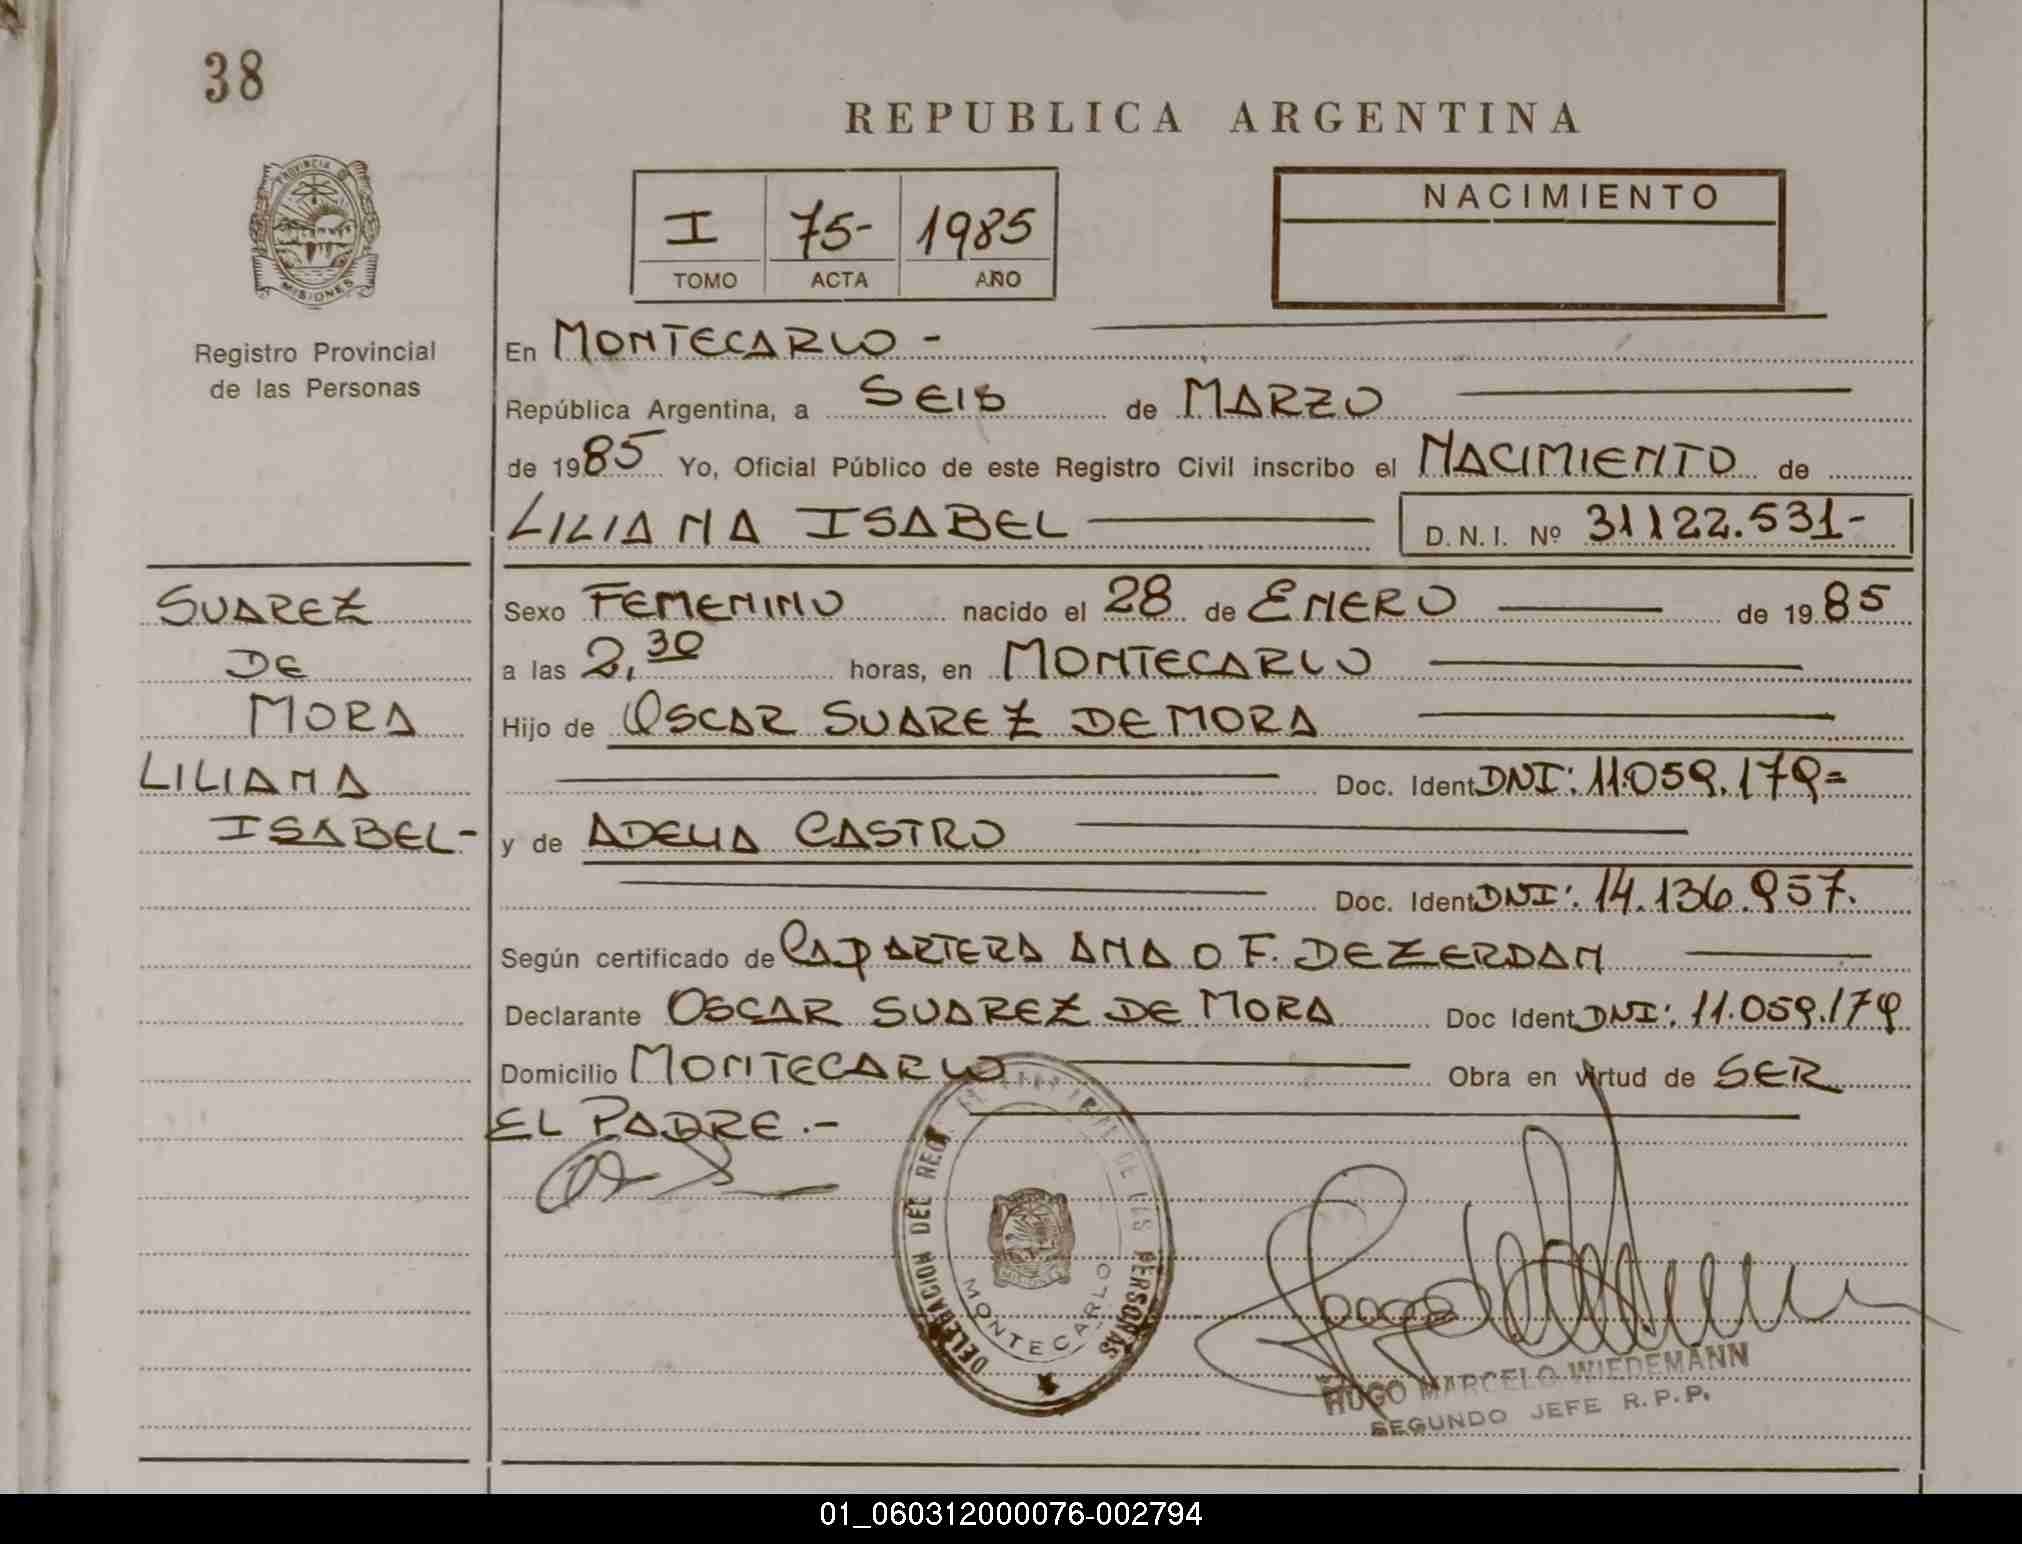 38
REPUBLICA ARGENTINA
PROVINCIA D
MISIONES
Registro Provincial
de las Personas
I 75- 1985
TOMO ACTA AÑO
NACIMIENTO
En MONTECARLO -
República Argentina, a SEIS de MARZO
de 1985 Yo, Oficial Público de este Registro Civil inscribo el NACIMIENTO de
LILIANA ISABEL D.N.I. Nº 31122.531-
SUAREZ
DE
MORA
LILIANA
ISABEL-
Sexo FEMENINO nacido el 28 de ENERO de 1985
a las 2,30 horas, en MONTECARLO
Hijo de OSCAR SUAREZ DE MORA
Doc. Ident DNI: 11.059.179=
y de ADELIA CASTRO
Doc. Ident DNI: 14.136.957.
Según certificado de PARTERA ANA O F. DEZERDAN
Declarante OSCAR SUAREZ DE MORA Doc Ident DNI: 11.059.179
Domicilio MONTECARLO Obra en virtud de SER
EL PADRE.-
DELEGACION DEL REG. DE LAS PERSONAS
MONTECARLO
HUGO MARCELO WIEDEMANN
SEGUNDO JEFE R.P.P.
01_060312000076-002794